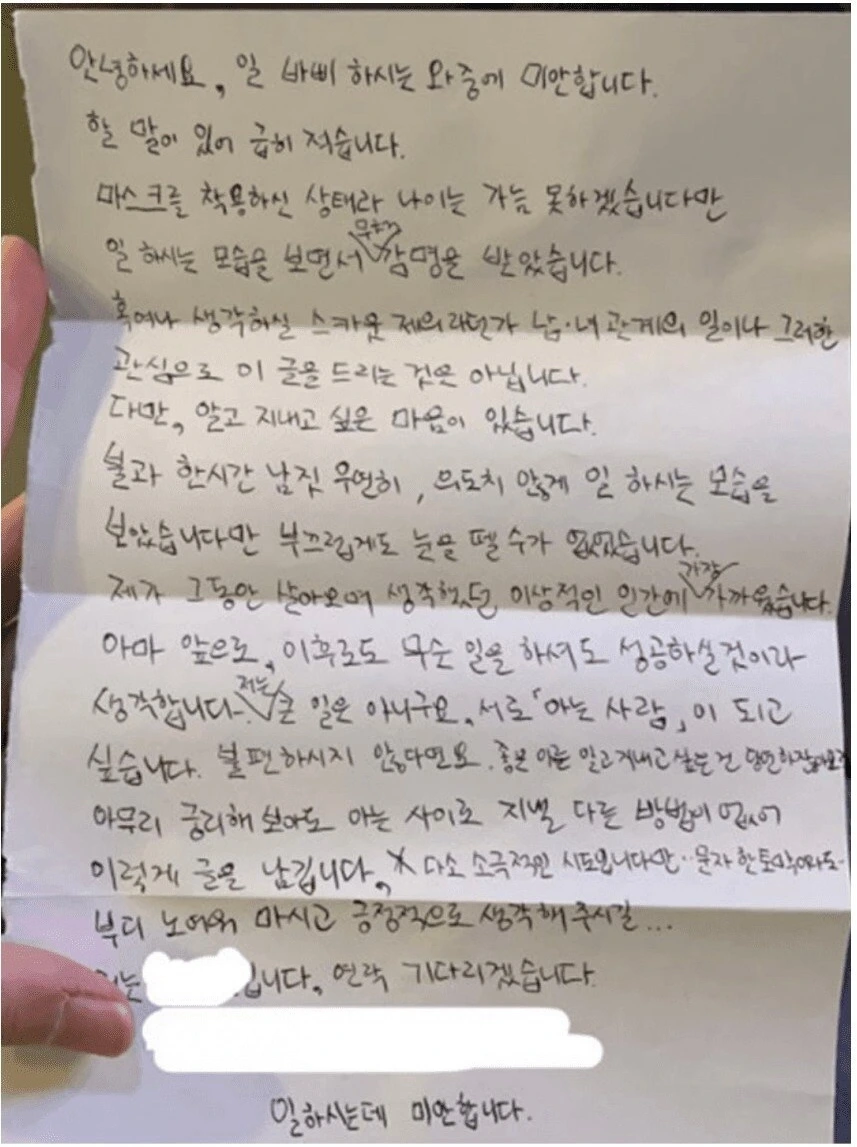 안녕하세요, 일 바삐 하시는 와중에 미안합니다.
할 말이 있어 급히 적습니다.
마스크를 착용하신 상태라 나이는 가늠 못하겠습니다만
일 하시는 모습을 보면서 무척 감명을 받았습니다.
혹여나 생각하실 스카웃 제의라던가 남·녀 관계의 일이나 그러한
관심으로 이 글을 드리는 것은 아닙니다.
다만, 알고 지내고 싶은 마음이 있습니다.
불과 한시간 남짓 우연히, 의도치 않게 일 하시는 모습을
보았습니다만 부끄럽게도 눈을 뗄 수가 없었습니다.
제가 그동안 살아오며 생각했던 이상적인 인간에 가장 가까웠습니다.
아마 앞으로, 이후로도 무슨 일을 하셔도 성공하실 것이라
생각합니다. 저는 큰 일은 아니구요, 서로「아는 사람」이 되고
싶습니다. 불편하시지 않다면요. 좋은 이를 알고 지내고 싶은 건 당연하잖아요?
아무리 궁리해 보아도 아는 사이로 지낼 다른 방법이 없어
이렇게 글을 남깁니다, 다소 소극적인 시도입니다만.. 문자 한
부디 노여워 마시고 긍정적으로 생각해 주시길...
입니다. 연락 기다리겠습니다.
일하시는데 미안합니다.